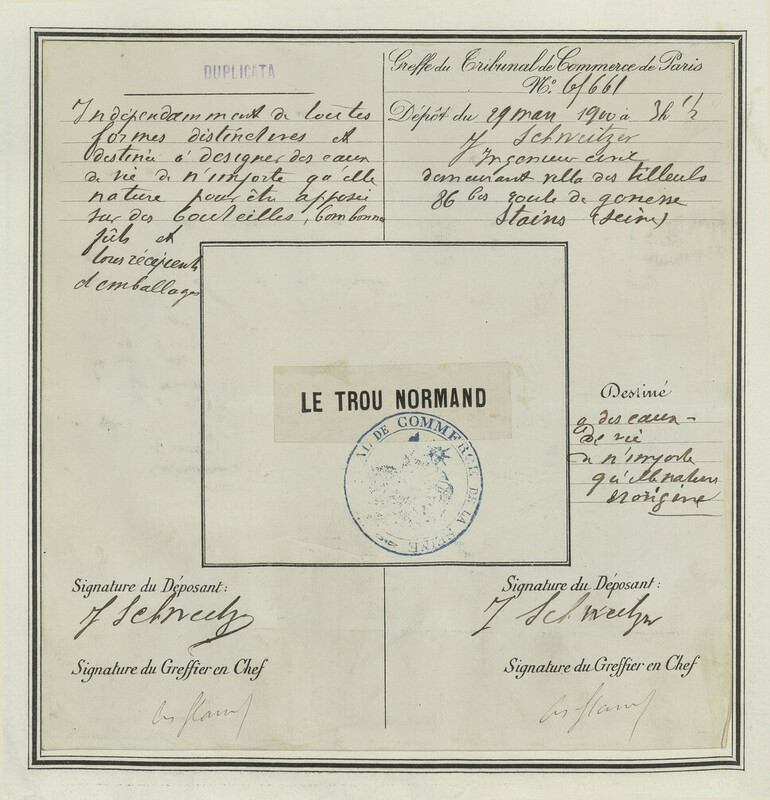 DUPLICATA
Indépendamment de toutes
formes distinctives et
destinée à designer des eaux
de vie de n'importe qu'elle
nature pour être apposée
sur des bouteilles, bombonnes
fûts et
tous récipients
d'emballages
Greffe du Tribunal de Commerce de Paris
N°. 6/661
Dépôt du 29 mars 1900 à 3h 1/2
J Schweitzer
Ingenieur civil
demeurant villa des tilleuls
86 bis route de gonesse
Stains (Seine)
LE TROU NORMAND
AL DE COMMERCE DE LA SEINE
Destiné
a des eaux-
de vie
de n'importe
qu'elle nature
et origine
Signature du Déposant:
J Schweitzer
Signature du Greffier en Chef
Signature du Déposant:
J Schweitzer
Signature du Greffier en Chef